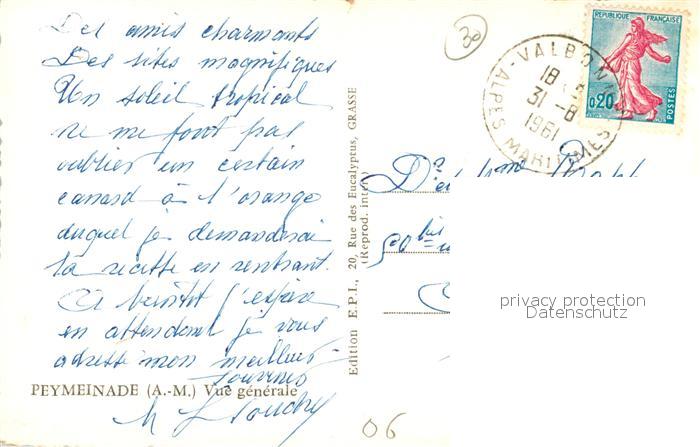 Des amis charmants
Des sites magnifiques
Un soleil tropical
ne me font pas
oublier un certain
canard à l'orange
duquel je demanderai
la recette en rentrant.
A bientôt j'espère
en attendant je vous
adresse mon meilleur
souvenir
PEYMEINADE (A.-M.) Vue générale
Edition E.P.I., 20, Rue des Eucalyptus, GRASSE
(Reprod. inter.)
30
REPUBLIQUE FRANÇAISE
0,20
POSTES
VALBONNE
18
31 -8
1961
ALPES MARITIMES
Dr et Mme
50 bis
privacy protection
Datenschutz
06